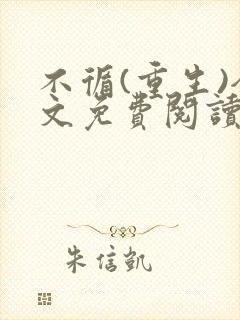 不循(重生)
文免費閱讀
朱信凱